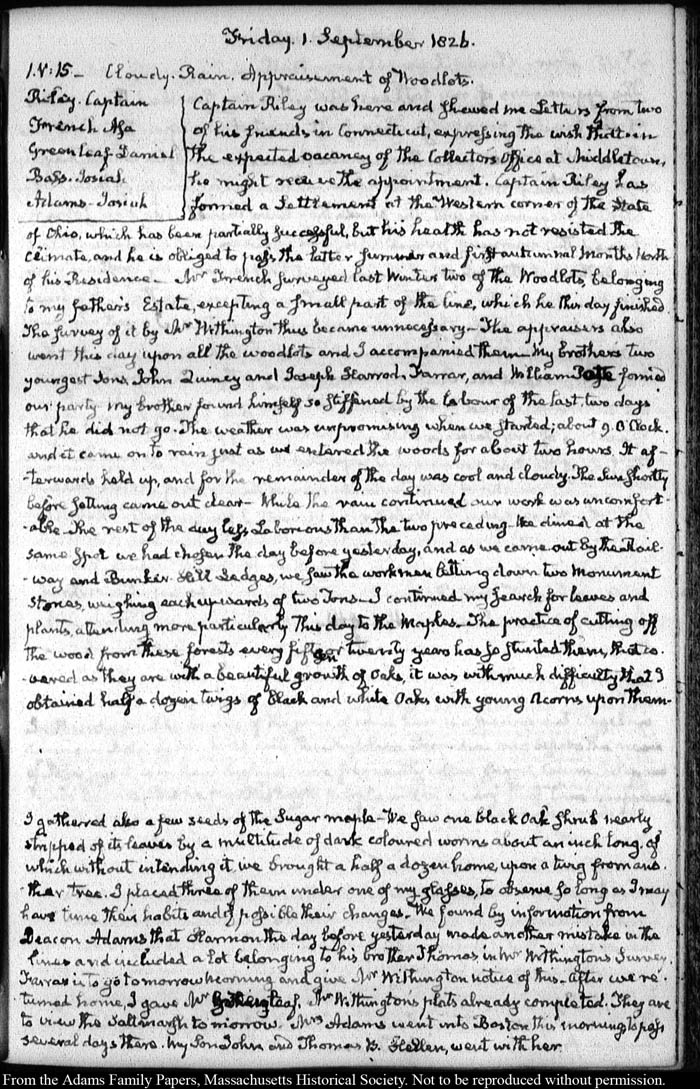 Friday. 1. September 1826.
1. V: 15 — Cloudy. Rain. Appraisement of Woodlots.
Riley. Captain
French Asa
Greenleaf Daniel
Bass. Josiah
Adams. Josiah
Captain Riley was here and shewed me Letters from two
of his friends in Connecticut, expressing the wish that in
the expected vacancy of the Collectors Office at Middletown,
he might receive the appointment. Captain Riley has
formed a Settlement at the Western corner of the State
of Ohio, which has been partially successful, but his health has not resisted the
Climate, and he is obliged to pass the latter summer and first autumnal Months North
of his Residence — Mr French surveyed last Winter two of the Woodlots, belonging
to my father's Estate, excepting a small part of the line, which he this day finished
The survey of it by Mr Withington thus became unnecessary — The appraisers also
went this day upon all the woodlots and I accompanied them — My brothers two
youngest Sons, John Quincy and Joseph Harrod, Farrar, and William formed
our party — my brother found himself so stiffened by the labour of the last two days
that he did not go. The weather was unpromising when we started; about 9. O'Clock.
and it came on to rain just as we entered the woods for about two hours. It af-
-terwards held up, and for the remainder of the day was cool and cloudy. The Sun shortly
before setting came out clear — While the rain continued our work was uncomfort-
-able — The rest of the day less Laborious than the two preceding — We dined at the
same spot we had chosen the day before yesterday, and as we came out by the Rail-
-way and Bunker-Hill Ledges, we saw the workmen letting down two Monument
Stones, weighing each upwards of two Tons — I continued my search for leaves and
plants, attending more particularly this day to the Maples — The practice of cutting off
the wood from these forests every fifteen or twenty years has so stunted them, that co-
-vered as they are with a beautiful growth of Oaks, it was with much difficulty that I
obtained half a dozen twigs of black and white Oaks with young Acorns upon them —
I gathered also a few seeds of the Sugar maple — We saw one black Oak shrub nearly
stripped of its leaves by a multitude of dark coloured worms about an inch long, of
which without intending it, we brought a half a dozen home, upon a twig from ano-
-ther tree. I placed three of them under one of my glasses, to observe so long as I may
have time their habits and if possible their changes — We found by information from
Deacon Adams that Harmon the day before yesterday made another mistake in the
lines and included a Lot belonging to his brother Thomas, in Mr Withington's Survey.
Farrar is to go tomorrow morning and give Mr Withington notice of this. After we re-
-turned home, I gave Mr Greenleaf, Mr Withingtons plats already completed. They are
to view the saltmarsh to morrow. Mrs Adams went into Boston this morning to pass
several days there. My Son John and Thomas B. Hellen, went with her.
From the Adams Family Papers, Massachusetts Historical Society. Not to be reproduced without permission.